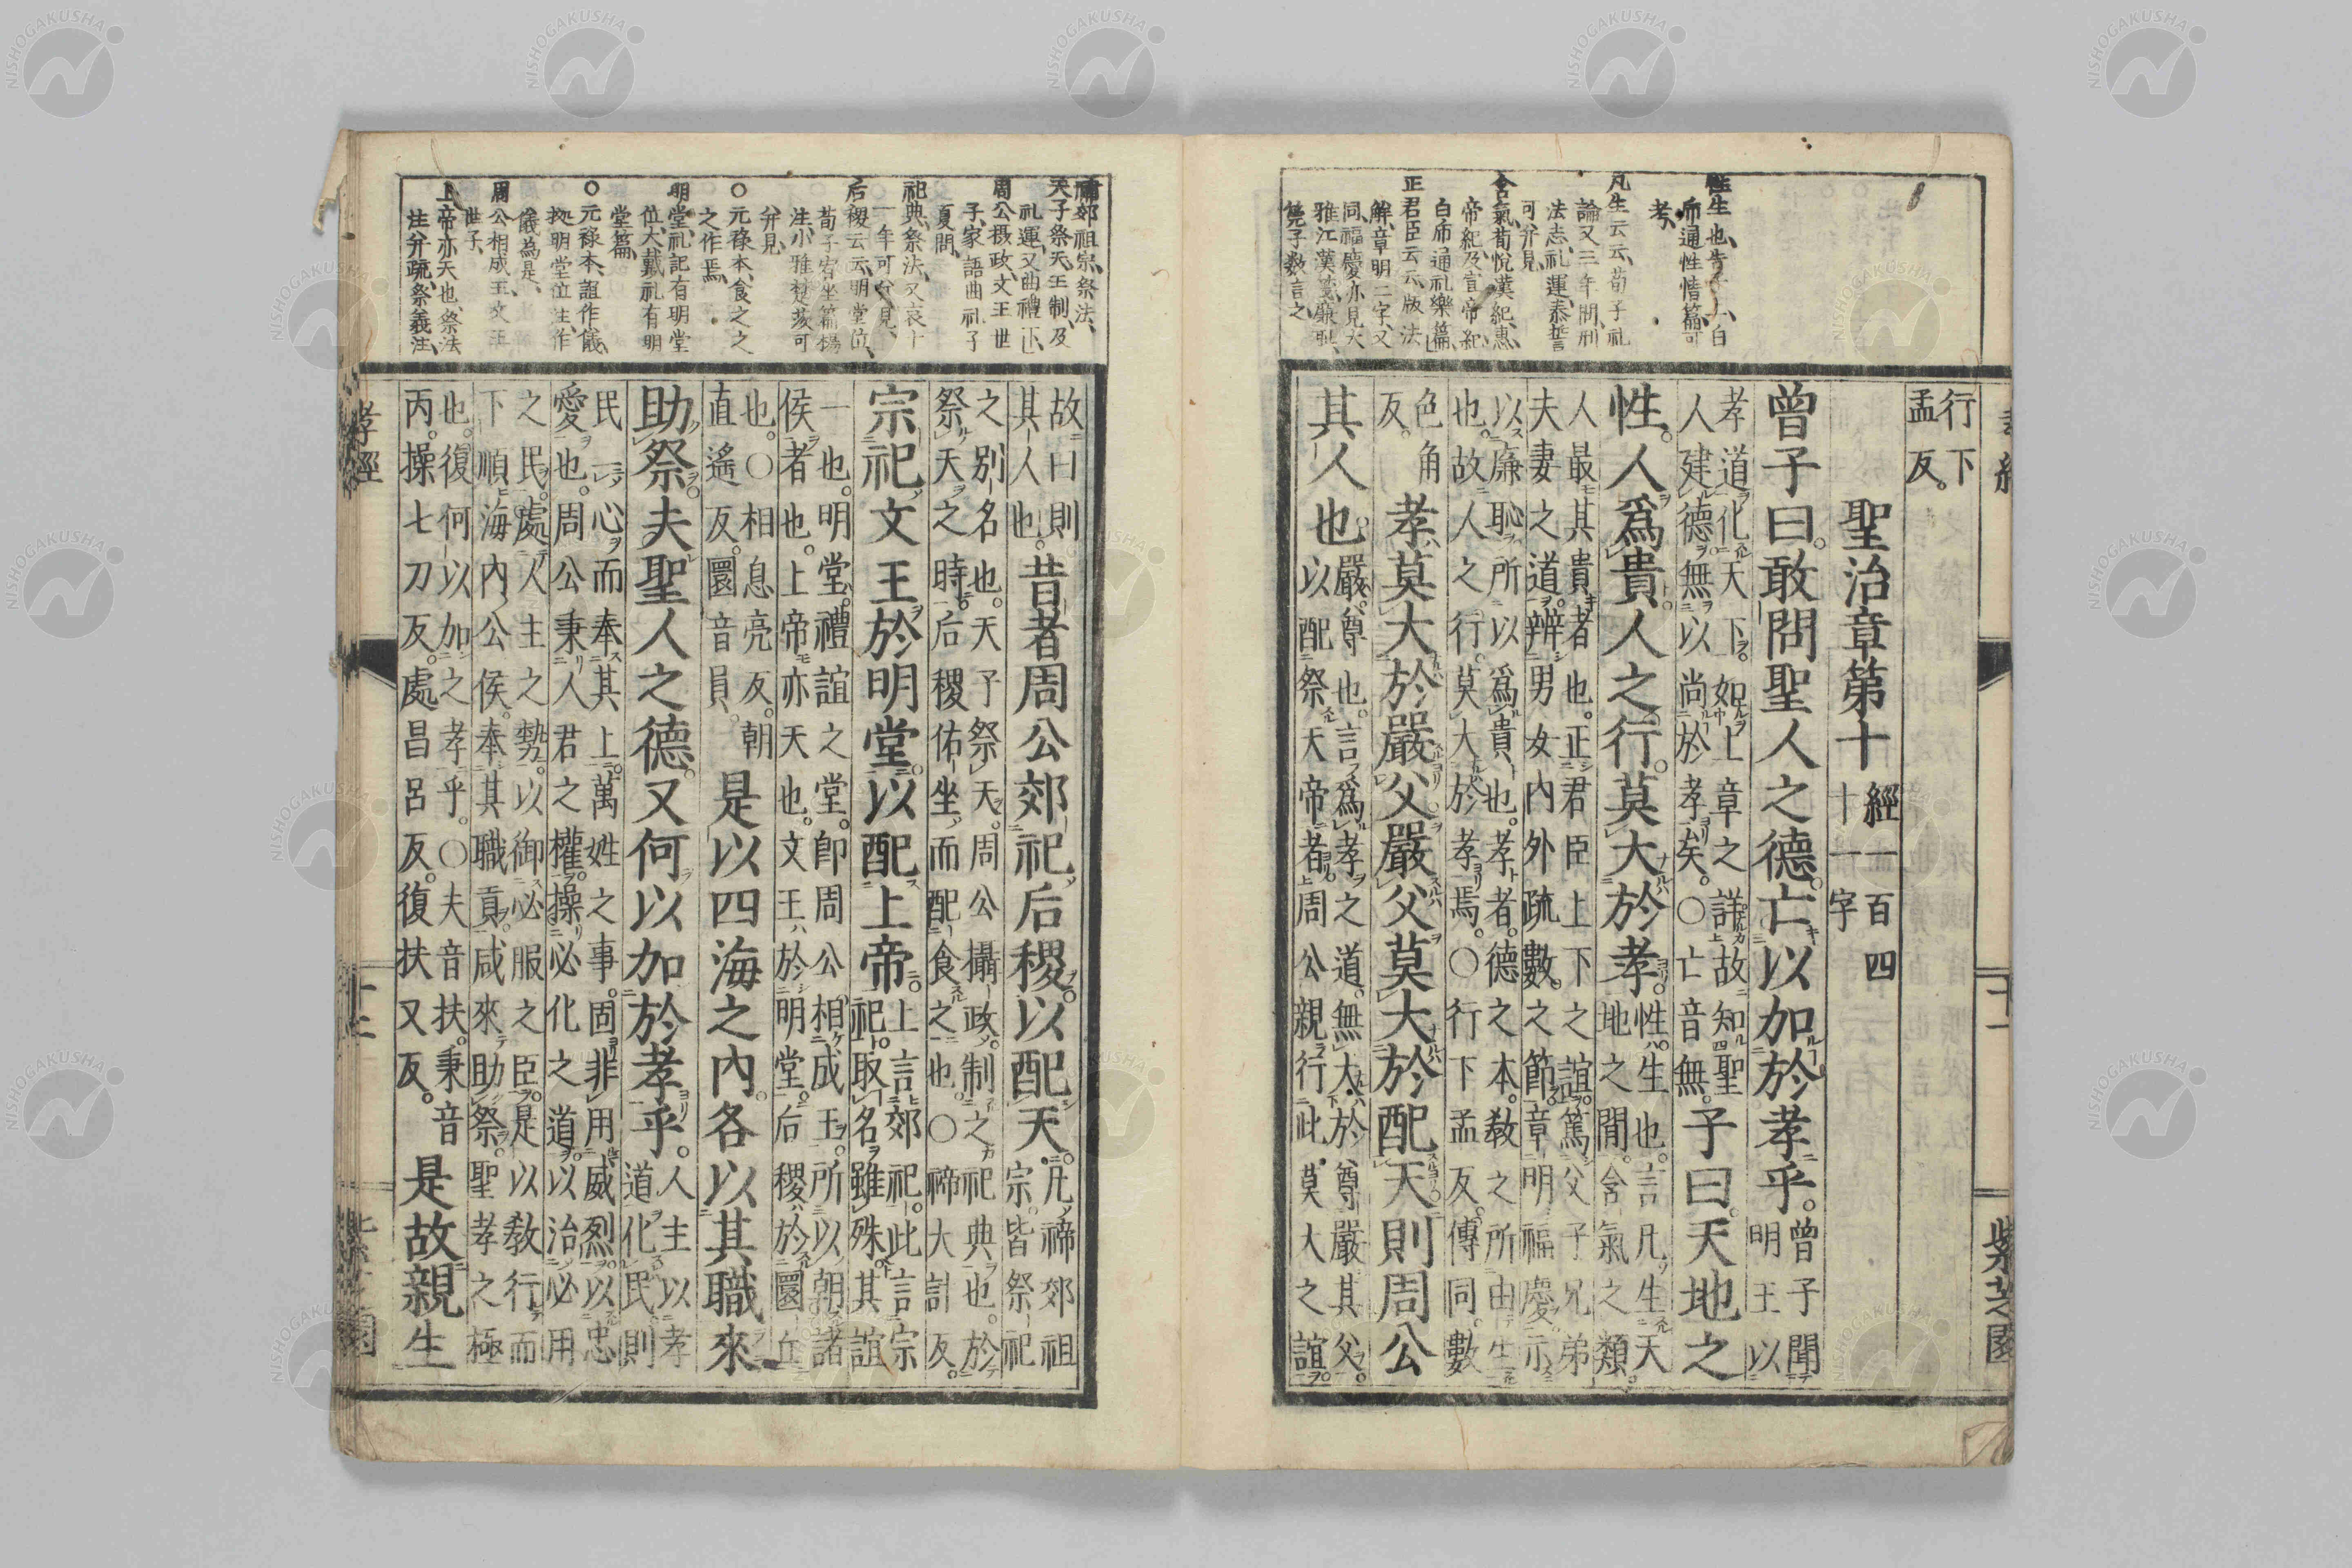 性生也、告子上、白
乕通性情篇、可
考、
凡生云云、荀子礼
論又三年問、刑
法志、礼運、泰誓
可并見、
含氣、荀悅漢紀、惠
帝紀及宣帝紀、
白乕通礼樂篇、
正君臣云云、版法
解、章明二字、又
同、福慶亦見大
雅江漢箋、廉恥、
筦子数言之、
行下
孟反。
聖治章第十
經一百四
十一字
曾子曰。敢問聖人之德。亡以加於孝乎。
曾子聞
明王以
孝道化天下。如上章之詳故知聖
人建德。無以尚於孝矣。○亡音無。
子曰。天地之
性。人爲貴。人之行。莫大於孝。
性。生也。言凡生天
地之閒。含氣之類。
人最其貴者也。正君臣上下之誼。篤父子兄弟
夫妻之道。辨男女內外疏數。之節。章明福慶。示
以廉恥。所以爲貴也。孝者。德之本。敎之所由生
也。故人之行。莫大於孝焉。○行下孟反。傳同。數
色角
反。
孝莫大於嚴父。嚴父莫大於配天。則周公
其人也。
嚴。尊也。言爲孝之道。無大於尊嚴其父。
以配祭天帝者。周公親行此。莫大之誼。
十一
紫芝園
禘郊祖宗、祭法、
天子祭天、王制、及
礼運、又曲禮下、
周公摂政、文王世
子、家語曲礼子
夏問、
祀典、祭法、又哀十
一年可并見、
后稷云云、明堂位、
荀子宥坐篇楊
注、小雅楚茨可
并見、
○元祿本、食之之
之作焉、
明堂、礼記有明堂
位、大戴礼有明
堂篇、
○元祿本、誼作儀、
拠明堂位注、作
儀為是、
周公相成王、文王
世子、
上帝亦天也、祭法
注、并疏、祭義注、
故曰則
其人也。
昔者周公郊祀后稷。以配天。
凡禘郊祖
宗。皆祭祀
之別名也。天子祭天。周公攝政。制之祀典也。於
祭天之時。后稷佑坐而配食之也。○禘大計反。
宗祀文王於明堂。以配上帝。
上言郊祀。此言宗
祀。取名雖殊。其誼
一也。明堂。禮誼之堂。卽周公相成王。所以朝諸
侯者也。上帝亦天也。文王於明堂。后稷於圜丘
也。○相息亮反。朝
直遙反。圜音員。
是以四海之內。各以其職來
助祭。夫聖人之德。又何以加於孝乎。
人主以孝
道化民則
民一心而奉其上。萬姓之事。固非用威烈。以忠
愛也。周公秉人君之權。操必化之道。以治必用
之民。處人主之勢。以御必服之臣。是以敎行而
下順。海內公侯。奉其職貢。咸來助祭。聖孝之極
也。復何以加之孝乎。○夫音扶。秉音
丙。操七刀反。處昌呂反。復扶又反。
是故親生
孝經
NISHOGAKUSHA